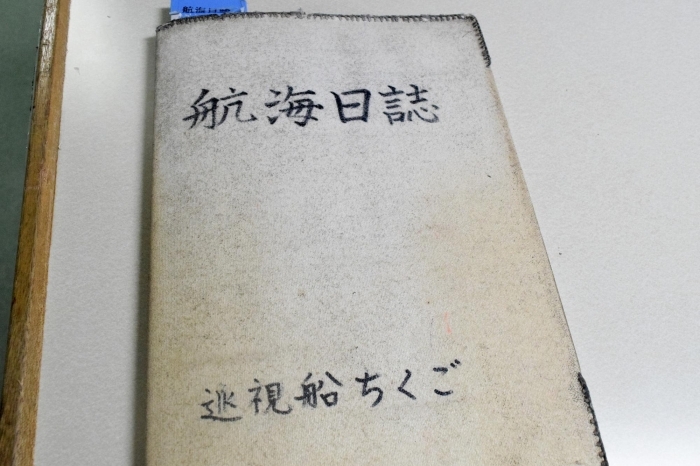 航海日誌
巡視船ちくご